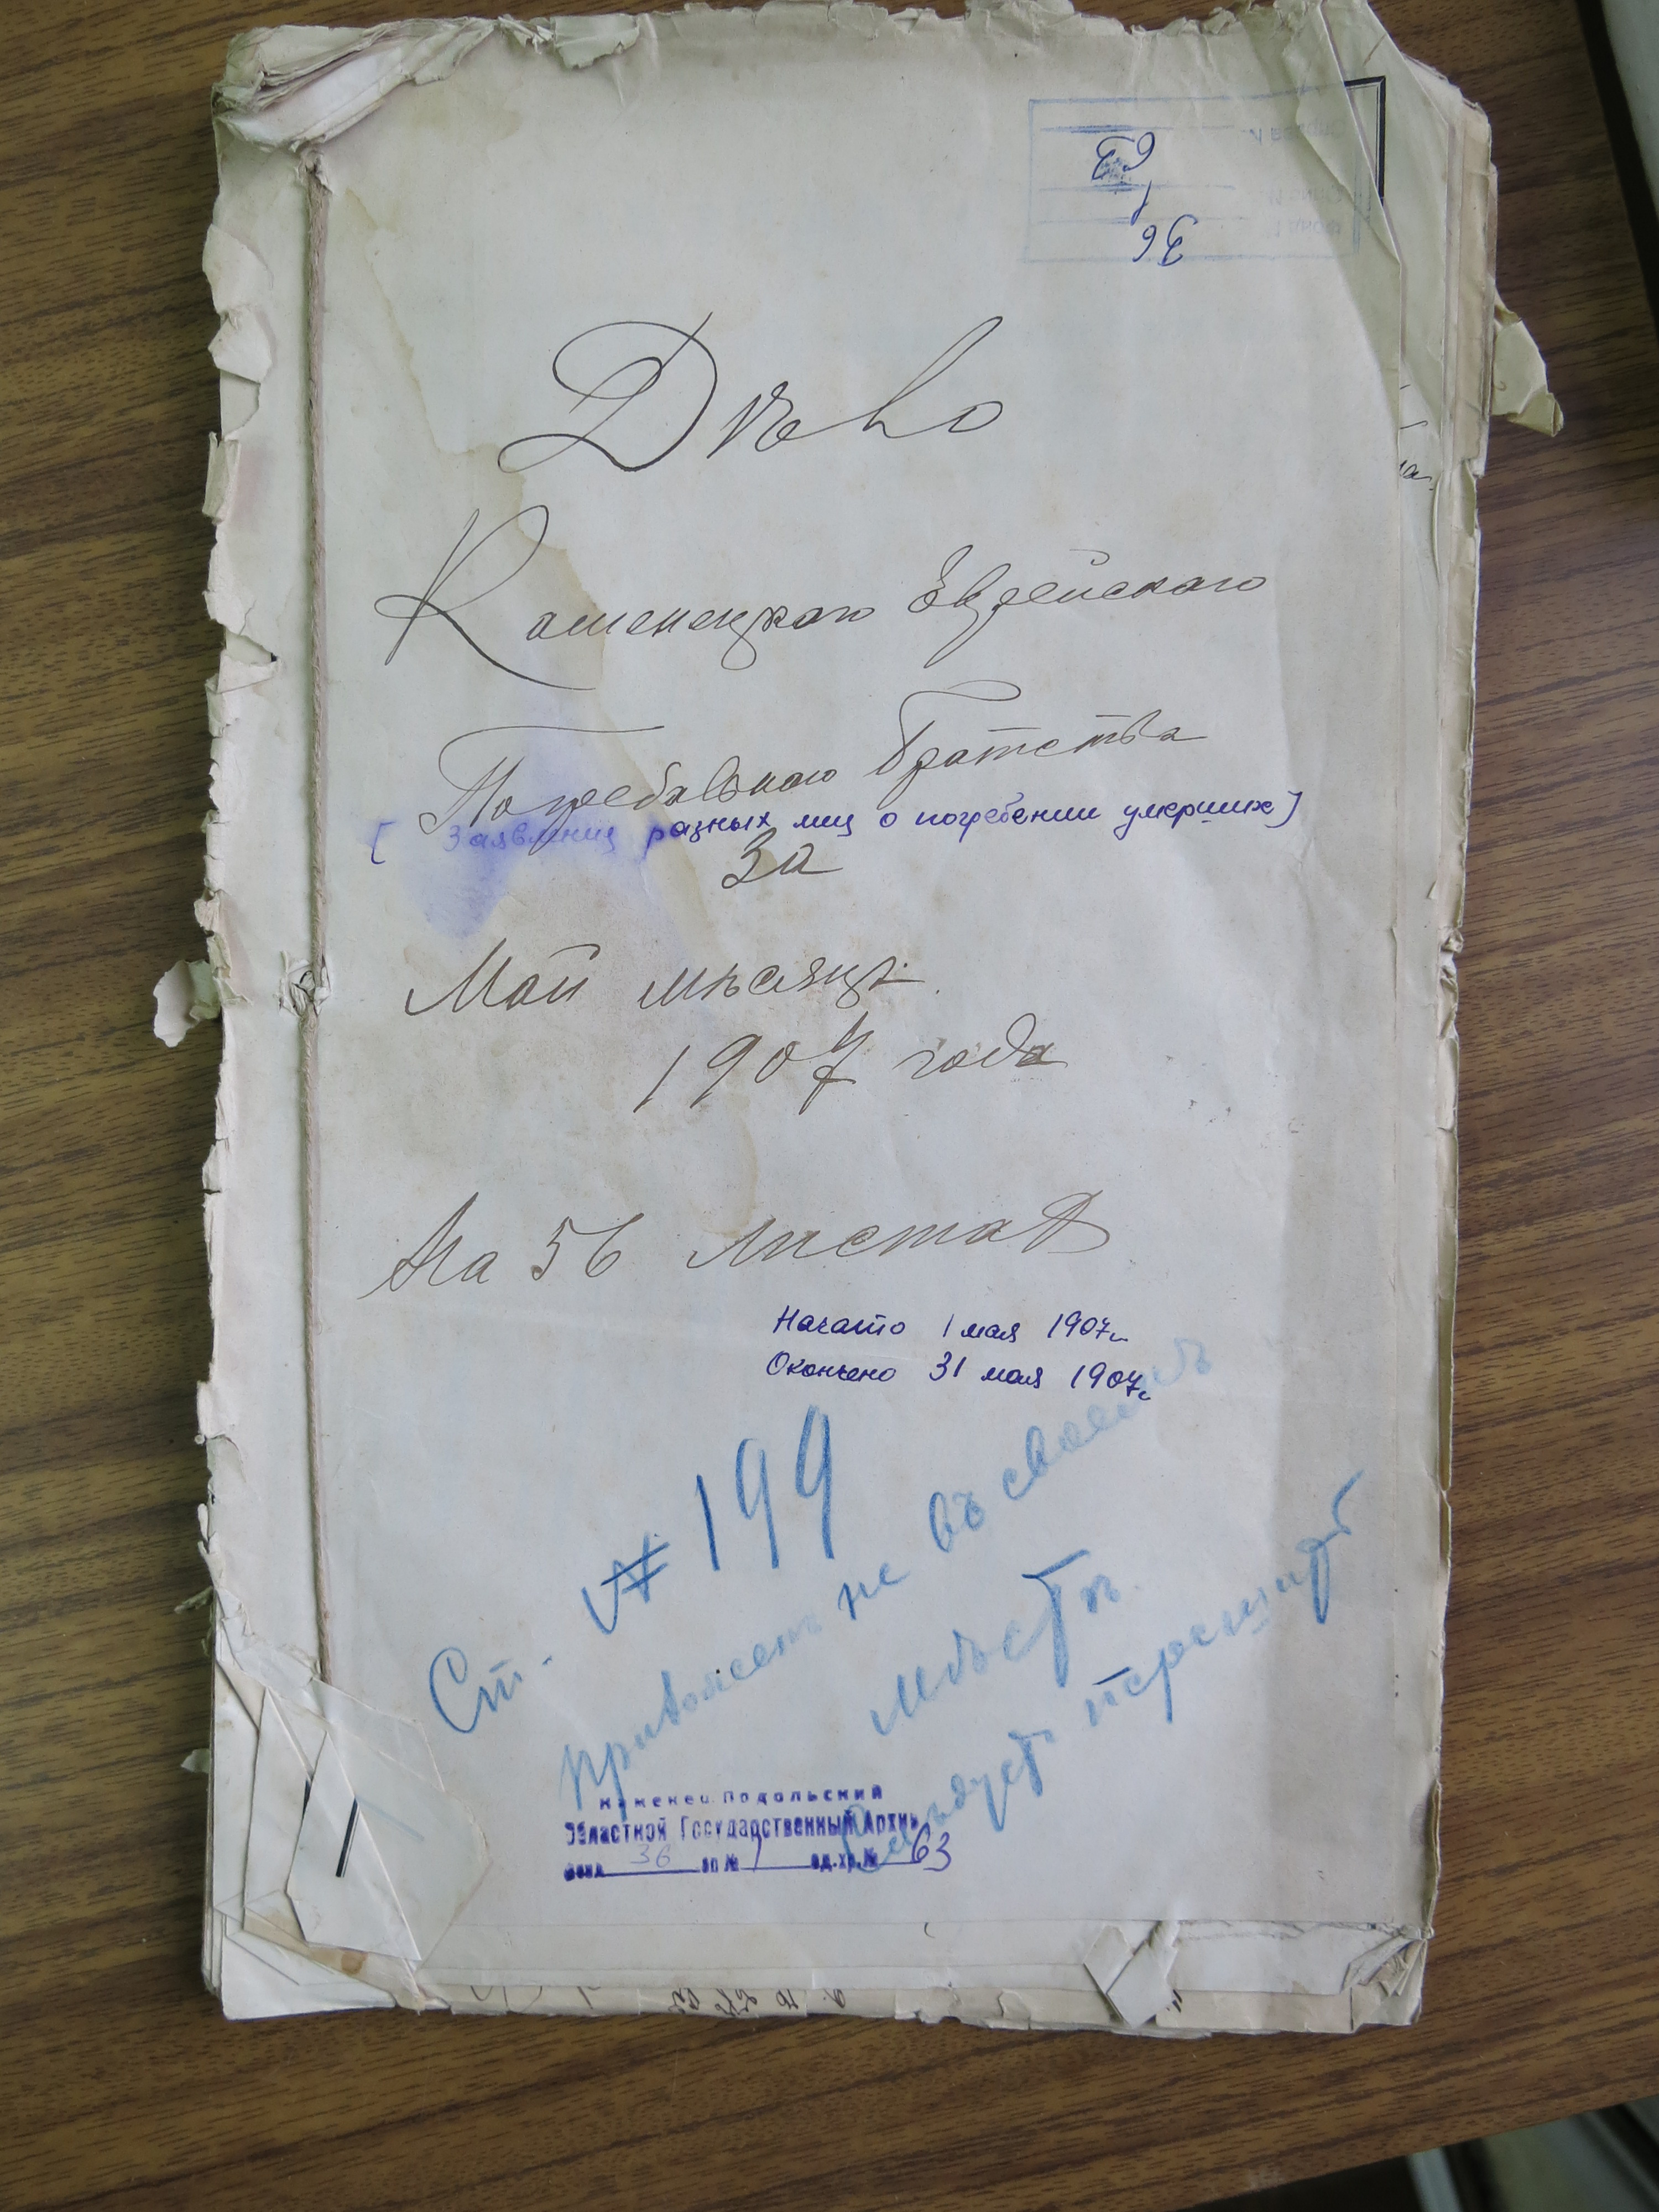 63
1
36
Дѣло
Каменецкаго Еврейскаго
Погребальнаго братства
[Заявления разных лиц о погребении умерших]
За
Май мѣсяцъ
1907 года
На 56 листах
Начато 1 мая 1907 г.
Окончено 31 мая 1907 г.
Ст. № 199
не въ своемъ
мѣстѣ
Слѣдует
Каменец-Подольский
Областной Государственный Архив
Фонд 36 оп № 1 ед. хр. № 63